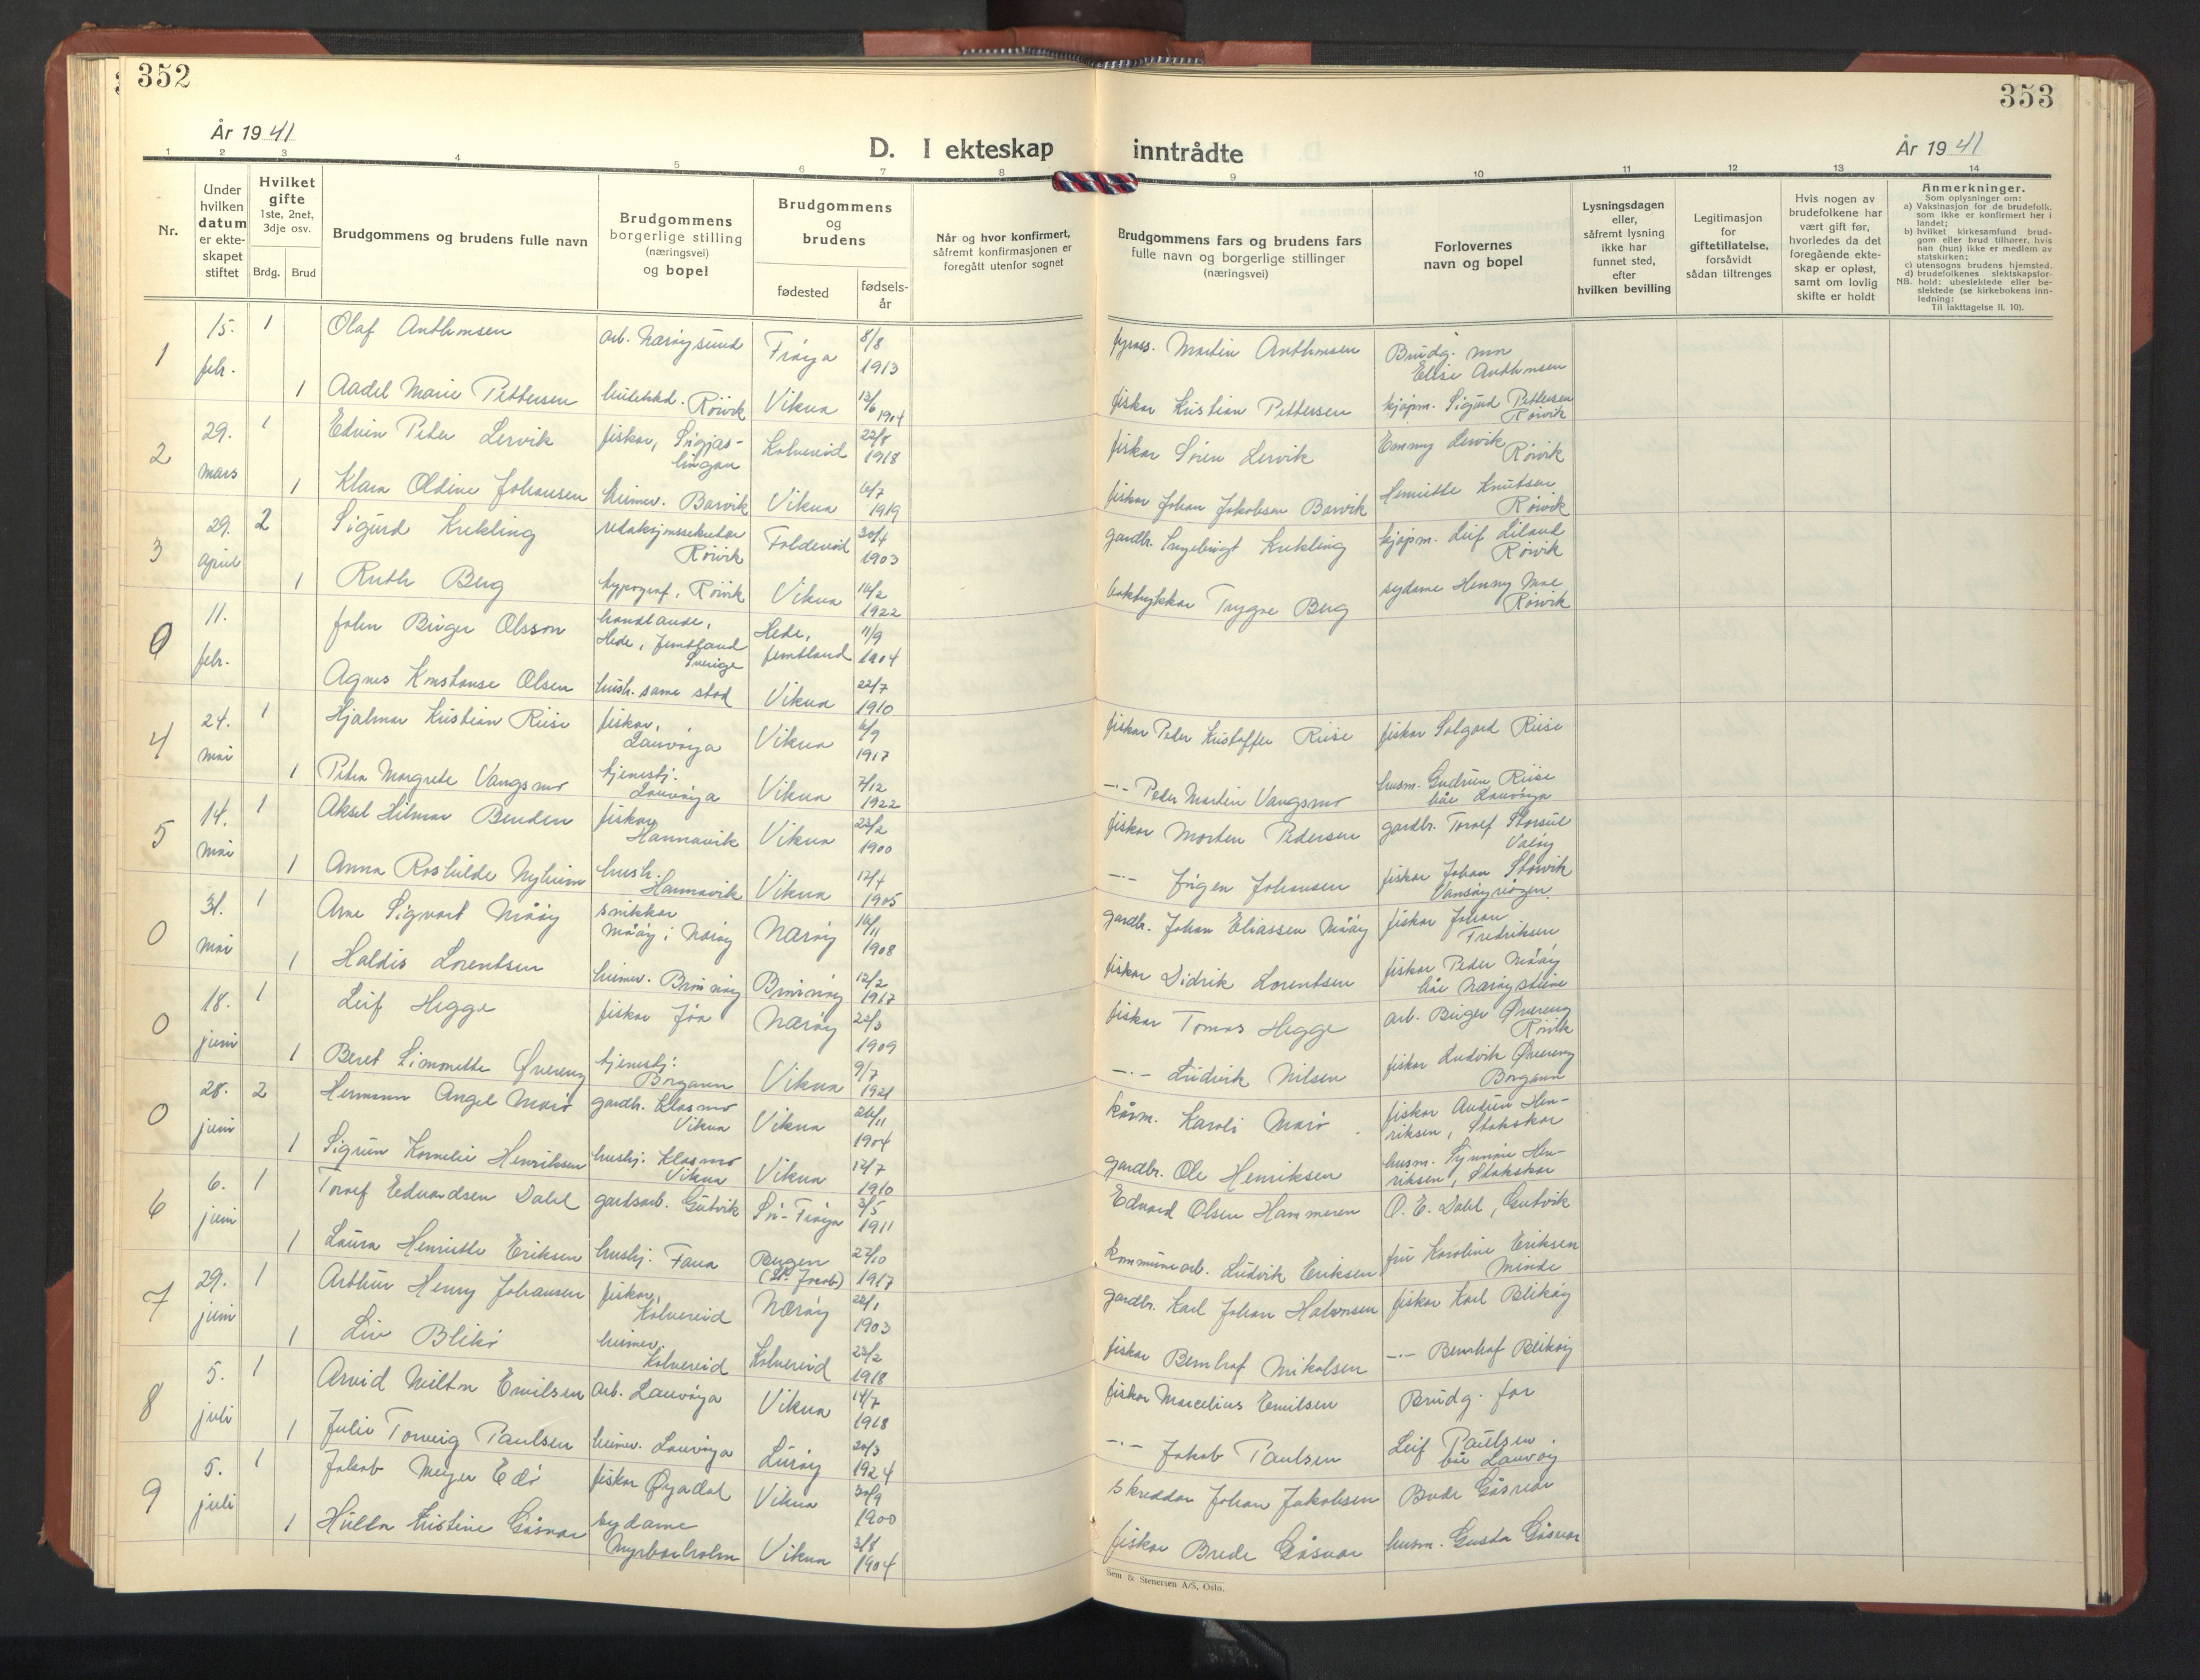 352
353
År 1941
D. I ekteskap inntrådte
År 1941
1 2 3 4 5 6 7 8 9 10 11 12 13 14
Nr.
Under
hvilken
datum
er ekte-
skapet
stiftet
Hvilket
gifte
1ste, 2net,
3dje osv.
Brdg. Brud
Brudgommens og brudens fulle navn
Brudgommens
borgerlige stilling
(næringsvei)
og bopel
Brudgommens
og
brudens
fødested
fødsels-
år
Når og hvor konfirmert,
såfremt konfirmasjonen er
foregått utenfor sognet
Brudgommens fars og brudens fars
fulle navn og borgerlige stillinger
(næringsvei)
Forlovernes
navn og bopel
Lysningsdagen
eller,
såfremt lysning
ikke har
funnet sted,
efter
hvilken bevilling
Legitimasjon
for
giftetillatelse,
forsåvidt
sådan tiltrenges
Hvis nogen av
brudefolkene har
vært gift før,
hvorledes da det
foregående ekte-
skap er opløst,
samt om lovlig
skifte er holdt
Anmerkninger.
Som oplysninger om:
a) Vaksinasjon for de brudefolk.
som ikke er konfirmert her i
landet;
b) hvilket kirkesamfund brud-
gom eller brud tilhører, hvis
han (hun) ikke er medlem av
statskirken;
c) utensogns brudens hjemsted.
d) brudefolkenes slektskapsfor-
NB. hold: ubeslektede eller be-
slektede (se kirkebokens inn-
ledning:
Til iakttagelse II. 10).
1 15. febr. 1 Olaf Anthonsen arb. Nærøysund Frøya 8/8 1913 Martin Anthonsen Brudg. mor Elise Anthonsen
1 Aadel Marie Pettersen Rörvik Vikna 13/6 1904 fiskar Kristian Pettersen kjøpm. Sigurd Pettersen Rörvik
2 29. mars 1 Edvin Peter Lervik fiskar, Kolvereid 22/8 1918 fiskar Sören Lervik Emmy Lervik Rörvik
1 Klara Oldine Johansen heimev. Barvik Vikna 6/7 1919 fiskar Johan Jakobsen Barvik Henriette Knutsen Rörvik
3 29. april 2 Sigurd Krekling redaksjonssekretær Rörvik Foldereid 30/4 1903 gardbr. Ingebrigt Krekling kjøpm. Leif Liland Rörvik
1 Ruth Berg typograf, Rörvik Vikna 14/2 1922 boktrykkar Trygve Berg sydame Henny Moe Rörvik
0 11. febr. John Birger Olsson handlande, Hede, Jemtland Sverige Hede, Jemtland 11/9 1904
Agnes Konstanse Olsen hush. same stad Vikna 22/7 1910
4 24. mai 1 Hjalmar Kristian Riise fiskar, Lauvøya Vikna 6/9 1917 fiskar Peder Kristoffer Riise fiskar Solgard Riise
1 Petra Margrete Vangsmo tjenestj. Lauvøya Vikna 7/12 1922 -"- Peder Martin Vangsmo husm. Gudrun Riise båe Lauvøya
5 14. mai 1 Aksel Hilmar Benden fiskar Hannavik Vikna 23/2 1900 fiskar Morten Pedersen gardbr. Toralf Storsul Valøy
1 Anna Roshilde Nyheim hush. Hannavik Vikna 12/4 1905 -"- Jørgen Johansen fiskar Johan Storvik
0 31. mai 1 Arne Sigvart Måøy snikkar Måøy i Nærøy Nærøy 16/11 1908 gardbr. Johan Eliassen Måøy fiskar Johan Fredriksen
1 Haldis Lorentsen heimev. 12/2 1917 fiskar Didrik Lorentsen fiskar Peder Måøy båe
0 18. juni 1 Leif Hegge fiskar Jøa Nærøy 22/3 1909 fiskar Tomas Hegge arb. Birger Øvereng Rörvik
1 Beret Simonette Øvereng tjenestj. Borgann Vikna 9/7 1921 -"- Ludvik Nilsen fiskar Ludvik Øvereng Borgann
0 28. juni 2 Hermann Angel Marö gardbr. Klasmo Vikna Vikna 26/11 1904 Karoli Marö fiskar Hen- riksen,
1 Sigrun Kornelie Henriksen hushj. Klasmo Vikna Vikna 12/7 1910 gardbr. Ole Henriksen husm. Synnöve Hen- riksen,
6 6. juni 1 Toralf Edvardsen Dahl gardsarb. Gutvik Sör-Frøya 3/5 1911 Edvard Olsen Hammeren O. E. Dahl, Gutvik
1 Laura Henriette Eriksen hushj. Fana Bergen (St. Jacob) 27/10 1917 kommunearb. Ludvik Eriksen fru Karoline Eriksen Minde
7 29. juni 1 Arthur Henry Johansen fiskar, Kolvereid Nærøy 28/1 1903 gardbr. Karl Johan Halvorsen fiskar Karl Blikøy
1 Liv Blikö heimev. Kolvereid Kolvereid 23/2 1918 fiskar Bernhof Mikalsen -"- Bernhof Blikøy
8 5. juli 1 Arvid Milton Emilsen arb. Lauvøya Vikna 14/7 1918 fiskar Marcelius Emilsen Brudg. far
1 Julie Torveig Paulsen heimev. Lauvøya Lurøy 20/3 1924 -"- Jakob Paulsen Leif Paulsen. båe Lauvøy
9 5. juli 1 Jakob Meyer Edö fiskar Øyadal Vikna 30/9 1900 skreddar Johan Jakobsen Brede Gåsvær
1 Kristine Gåsvær sydame Myrbærholm Vikna 3/8 1904 fiskar Brede Gåsvær husm. Gusta Gåsvær
Sem & Stenersen A/S, Oslo.